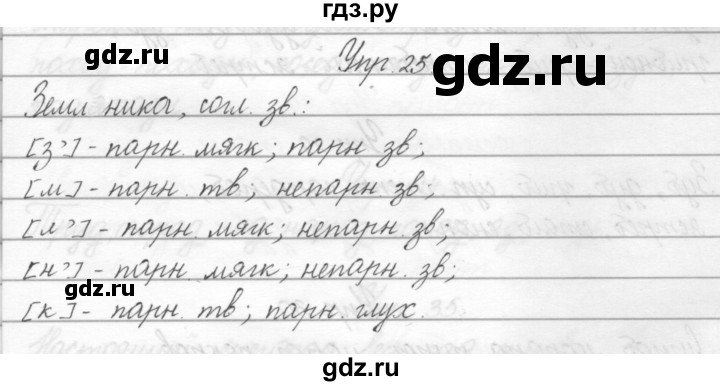 гдз.ру
gdz.ru gdz.ru
Упр. 25
Земл ника, согл. зв.:
[з’] - парн. мягк; парн. зв;
[м] - парн. тв; непарн. зв;
[л’] - парн. мягк; непарн. зв;
[н’] - парн. мягк; непарн. зв;
[к] - парн. тв; парн. глух.
gdz.ru